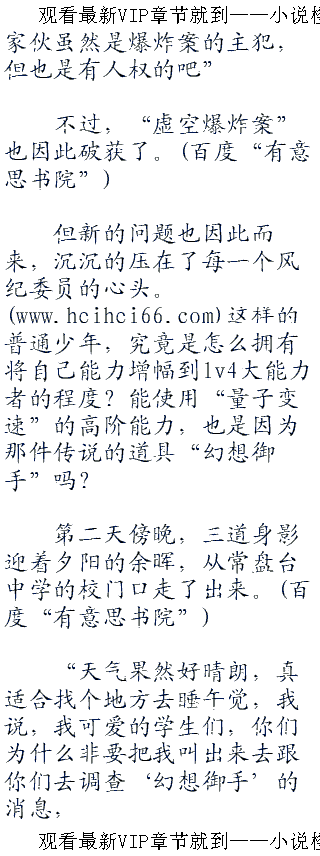 观看最新VIP章节就到——小说
家伙虽然是爆炸案的主犯，
但也是有人权的吧”
不过，“虚空爆炸案”
也因此破获了。(百度“有意
思书院”)
但新的问题也因此而
来，沉沉的压在了每一个风
纪委员的心头。
(www.hcihci66.com)这样的
普通少年，究竟是怎么拥有
将自己能力增幅到lv4大能力
者的程度？能使用“量子变
速”的高阶能力，也是因为
那件传说的道具“幻想御
手”吗？
第二天傍晚，三道身影
迎着夕阳的余晖，从常盘台
中学的校门口走了出来。(百
度“有意思书院”)
“天气果然好晴朗，真
适合找个地方去睡午觉，我
说，我可爱的学生们，你们
为什么非要把我叫出来去跟
你们去调查‘幻想御手’的
消息，
观看最新VIP章节就到——小说